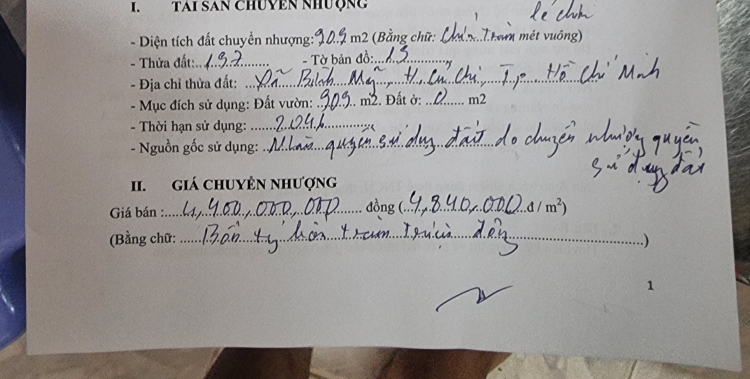 I. TÀI SẢN CHUYỂN NHƯỢNG
lẻ chín
- Diện tích đất chuyển nhượng: 909 m2 (Bằng chữ: Chín Trăm mét vuông)
- Thửa đất: 137 - Tờ bản đồ: 15
- Địa chỉ thửa đất: Xã Bình Mỹ, H. Củ Chi, Tp Hồ Chí Minh
- Mục đích sử dụng: Đất vườn: 909 m2. Đất ở: 0 m2
- Thời hạn sử dụng:
- Nguồn gốc sử dụng: Nhận quyền sử dụng đất do chuyển nhượng quyền
sử dụng đất
II. GIÁ CHUYỂN NHƯỢNG
Giá bán : 4,400,000,000 đồng (4,840,000 đ / m²)
(Bằng chữ: Bốn tỷ bốn trăm triệu đồng)
1